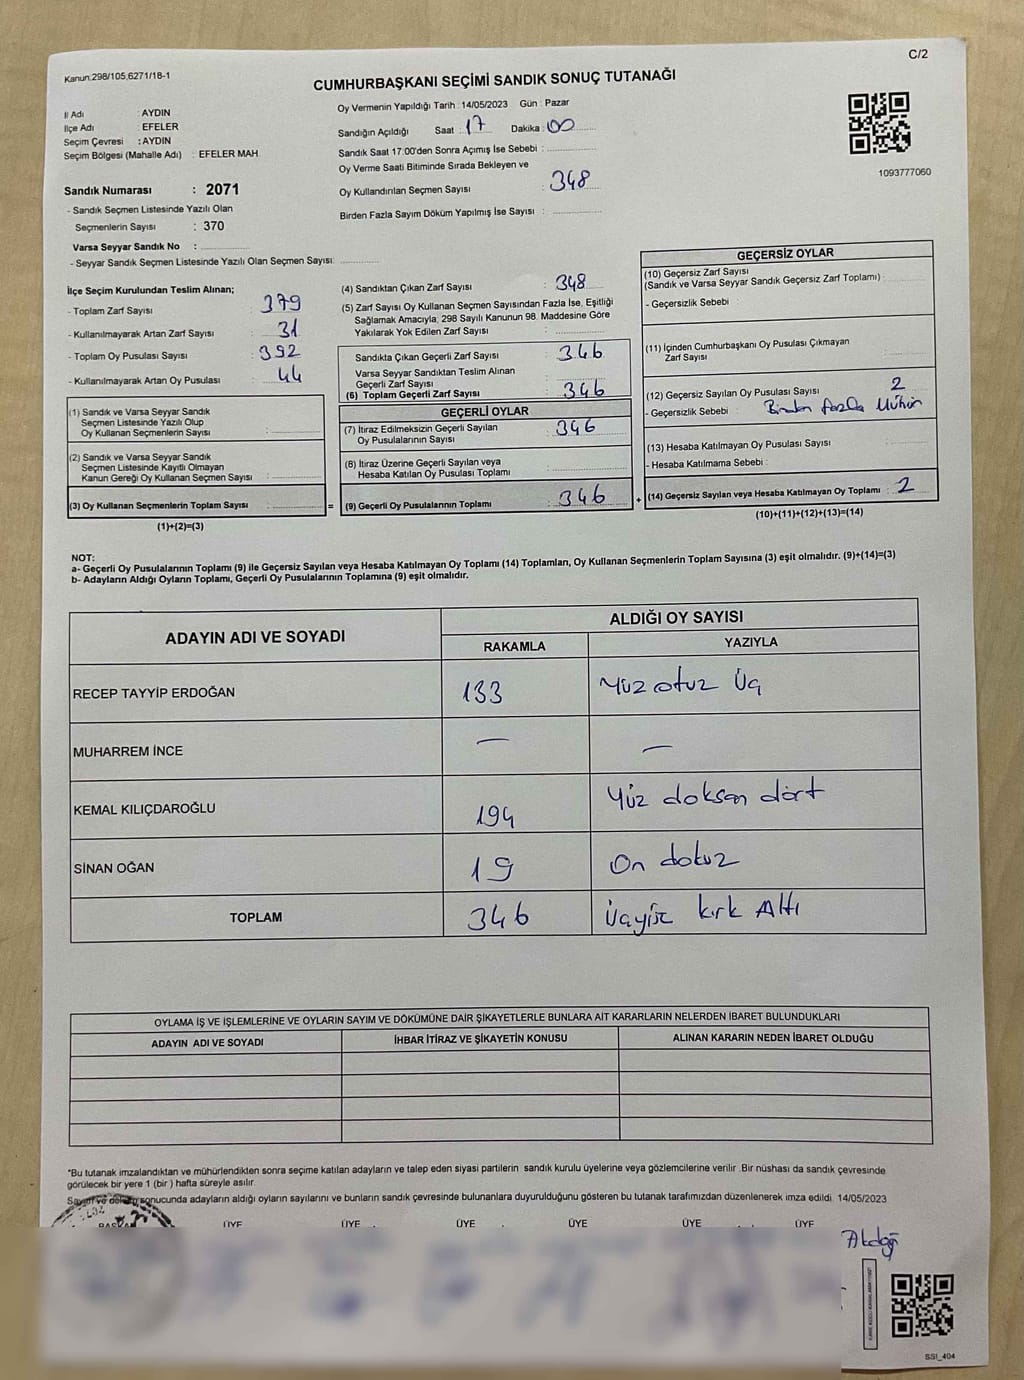 C/2
Kanun:298/105,6271/18-1
CUMHURBAŞKANI SEÇİMİ SANDIK SONUÇ TUTANAĞI
İl Adı : AYDIN
İlçe Adı : EFELER
Seçim Çevresi : AYDIN
Seçim Bölgesi (Mahalle Adı) : EFELER MAH
Oy Vermenin Yapıldığı Tarih : 14/05/2023 Gün : Pazar
Sandığın Açıldığı Saat : 17 Dakika : 00
Sandık Saat 17:00'den Sonra Açılmış İse Sebebi :
Oy Verme Saati Bitiminde Sırada Bekleyen ve
Oy Kullandırılan Seçmen Sayısı : 348
Birden Fazla Sayım Döküm Yapılmış İse Sayısı :
1093777060
Sandık Numarası : 2071
- Sandık Seçmen Listesinde Yazılı Olan
Seçmenlerin Sayısı : 370
Varsa Seyyar Sandık No :
- Seyyar Sandık Seçmen Listesinde Yazılı Olan Seçmen Sayısı:
İlçe Seçim Kurulundan Teslim Alınan;
- Toplam Zarf Sayısı : 379
- Kullanılmayarak Artan Zarf Sayısı : 31
- Toplam Oy Pusulası Sayısı : 392
- Kullanılmayarak Artan Oy Pusulası : 44
(1) Sandık ve Varsa Seyyar Sandık
Seçmen Listesinde Yazılı Olup
Oy Kullanan Seçmenlerin Sayısı :
(2) Sandık ve Varsa Seyyar Sandık
Seçmen Listesinde Kayıtlı Olmayan
Kanun Gereği Oy Kullanan Seçmen Sayısı :
(3) Oy Kullanan Seçmenlerin Toplam Sayısı :
(1)+(2)=(3)
=
(4) Sandıktan Çıkan Zarf Sayısı : 348
(5) Zarf Sayısı Oy Kullanan Seçmen Sayısından Fazla İse, Eşitliği
Sağlamak Amacıyla, 298 Sayılı Kanunun 98. Maddesine Göre
Yakılarak Yok Edilen Zarf Sayısı :
Sandıkta Çıkan Geçerli Zarf Sayısı : 346
Varsa Seyyar Sandıktan Teslim Alınan
Geçerli Zarf Sayısı :
(6) Toplam Geçerli Zarf Sayısı : 346
GEÇERLİ OYLAR
(7) İtiraz Edilmeksizin Geçerli Sayılan
Oy Pusulalarının Sayısı : 346
(8) İtiraz Üzerine Geçerli Sayılan veya
Hesaba Katılan Oy Pusulası Toplamı :
(9) Geçerli Oy Pusulalarının Toplamı : 346
+
GEÇERSİZ OYLAR
(10) Geçersiz Zarf Sayısı
(Sandık ve Varsa Seyyar Sandık Geçersiz Zarf Toplamı) :
- Geçersizlik Sebebi :
(11) İçinden Cumhurbaşkanı Oy Pusulası Çıkmayan
Zarf Sayısı :
(12) Geçersiz Sayılan Oy Pusulası Sayısı : 2
- Geçersizlik Sebebi : Birden fazla Mühür
(13) Hesaba Katılmayan Oy Pusulası Sayısı :
- Hesaba Katılmama Sebebi :
(14) Geçersiz Sayılan veya Hesaba Katılmayan Oy Toplamı : 2
(10)+(11)+(12)+(13)=(14)
NOT:
a- Geçerli Oy Pusulalarının Toplamı (9) ile Geçersiz Sayılan veya Hesaba Katılmayan Oy Toplamı (14) Toplamları, Oy Kullanan Seçmenlerin Toplam Sayısına (3) eşit olmalıdır. (9)+(14)=(3)
b- Adayların Aldığı Oyların Toplamı, Geçerli Oy Pusulalarının Toplamına (9) eşit olmalıdır.
ADAYIN ADI VE SOYADI
ALDIĞI OY SAYISI
RAKAMLA YAZIYLA
RECEP TAYYİP ERDOĞAN 133 Yüz otuz üç
MUHARREM İNCE — —
KEMAL KILIÇDAROĞLU 194 Yüz doksan dört
SİNAN OĞAN 19 On dokuz
TOPLAM 346 Üçyüz kırk Altı
OYLAMA İŞ VE İŞLEMLERİNE VE OYLARIN SAYIM VE DÖKÜMÜNE DAİR ŞİKAYETLERLE BUNLARA AİT KARARLARIN NELERDEN İBARET BULUNDUKLARI
ADAYIN ADI VE SOYADI İHBAR İTİRAZ VE ŞİKAYETİN KONUSU ALINAN KARARIN NEDEN İBARET OLDUĞU
*Bu tutanak imzalandıktan ve mühürlendikten sonra seçime katılan adayların ve talep eden siyasi partilerin sandık kurulu üyelerine veya gözlemcilerine verilir .Bir nüshası da sandık çevresinde
görülecek bir yere 1 (bir ) hafta süreyle asılır.
Sayım ve döküm sonucunda adayların aldığı oyların sayılarını ve bunların sandık çevresinde bulunanlara duyurulduğunu gösteren bu tutanak tarafımızdan düzenlenerek imza edildi. 14/05/2023
BAŞKAN ÜYE ÜYE ÜYE ÜYE ÜYE ÜYE
SSI_404